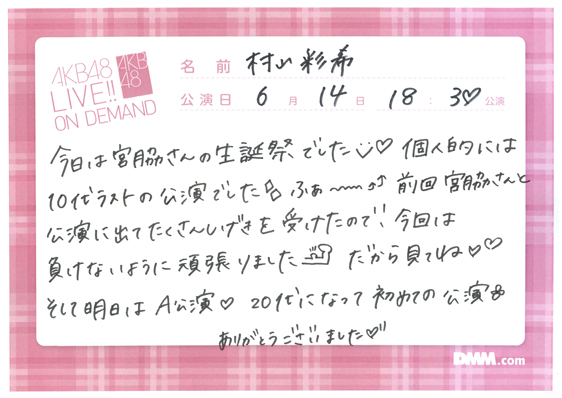 AKB48
LIVE!!
ON DEMAND
AKB
48
名前 村山彩希
公演日 6月14日 18:30公演
今日は宮脇さんの生誕祭でした 個人的には
10代ラストの公演でした ふぁ〜 前回宮脇さんと
公演に出てたくさんしげきを受けたので! 今回は
負けないように頑張りました だから見てね
そして明日はA公演 20代になって初めての公演
ありがとうございました
DMM.com